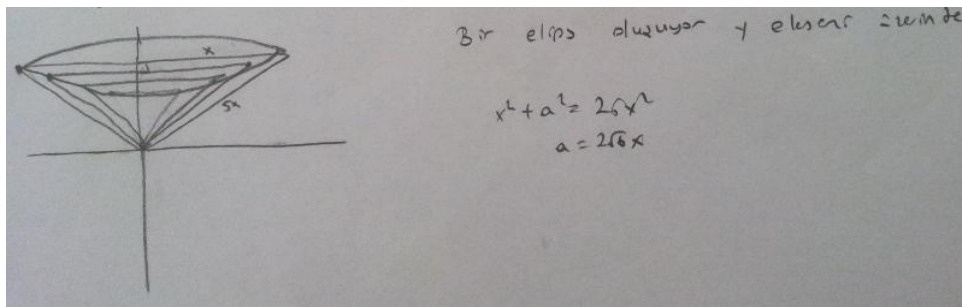 Bir elips oluşuyor y ekseni üzerinde
x
5x
x² + a² = 25x²
a = 2√6 x